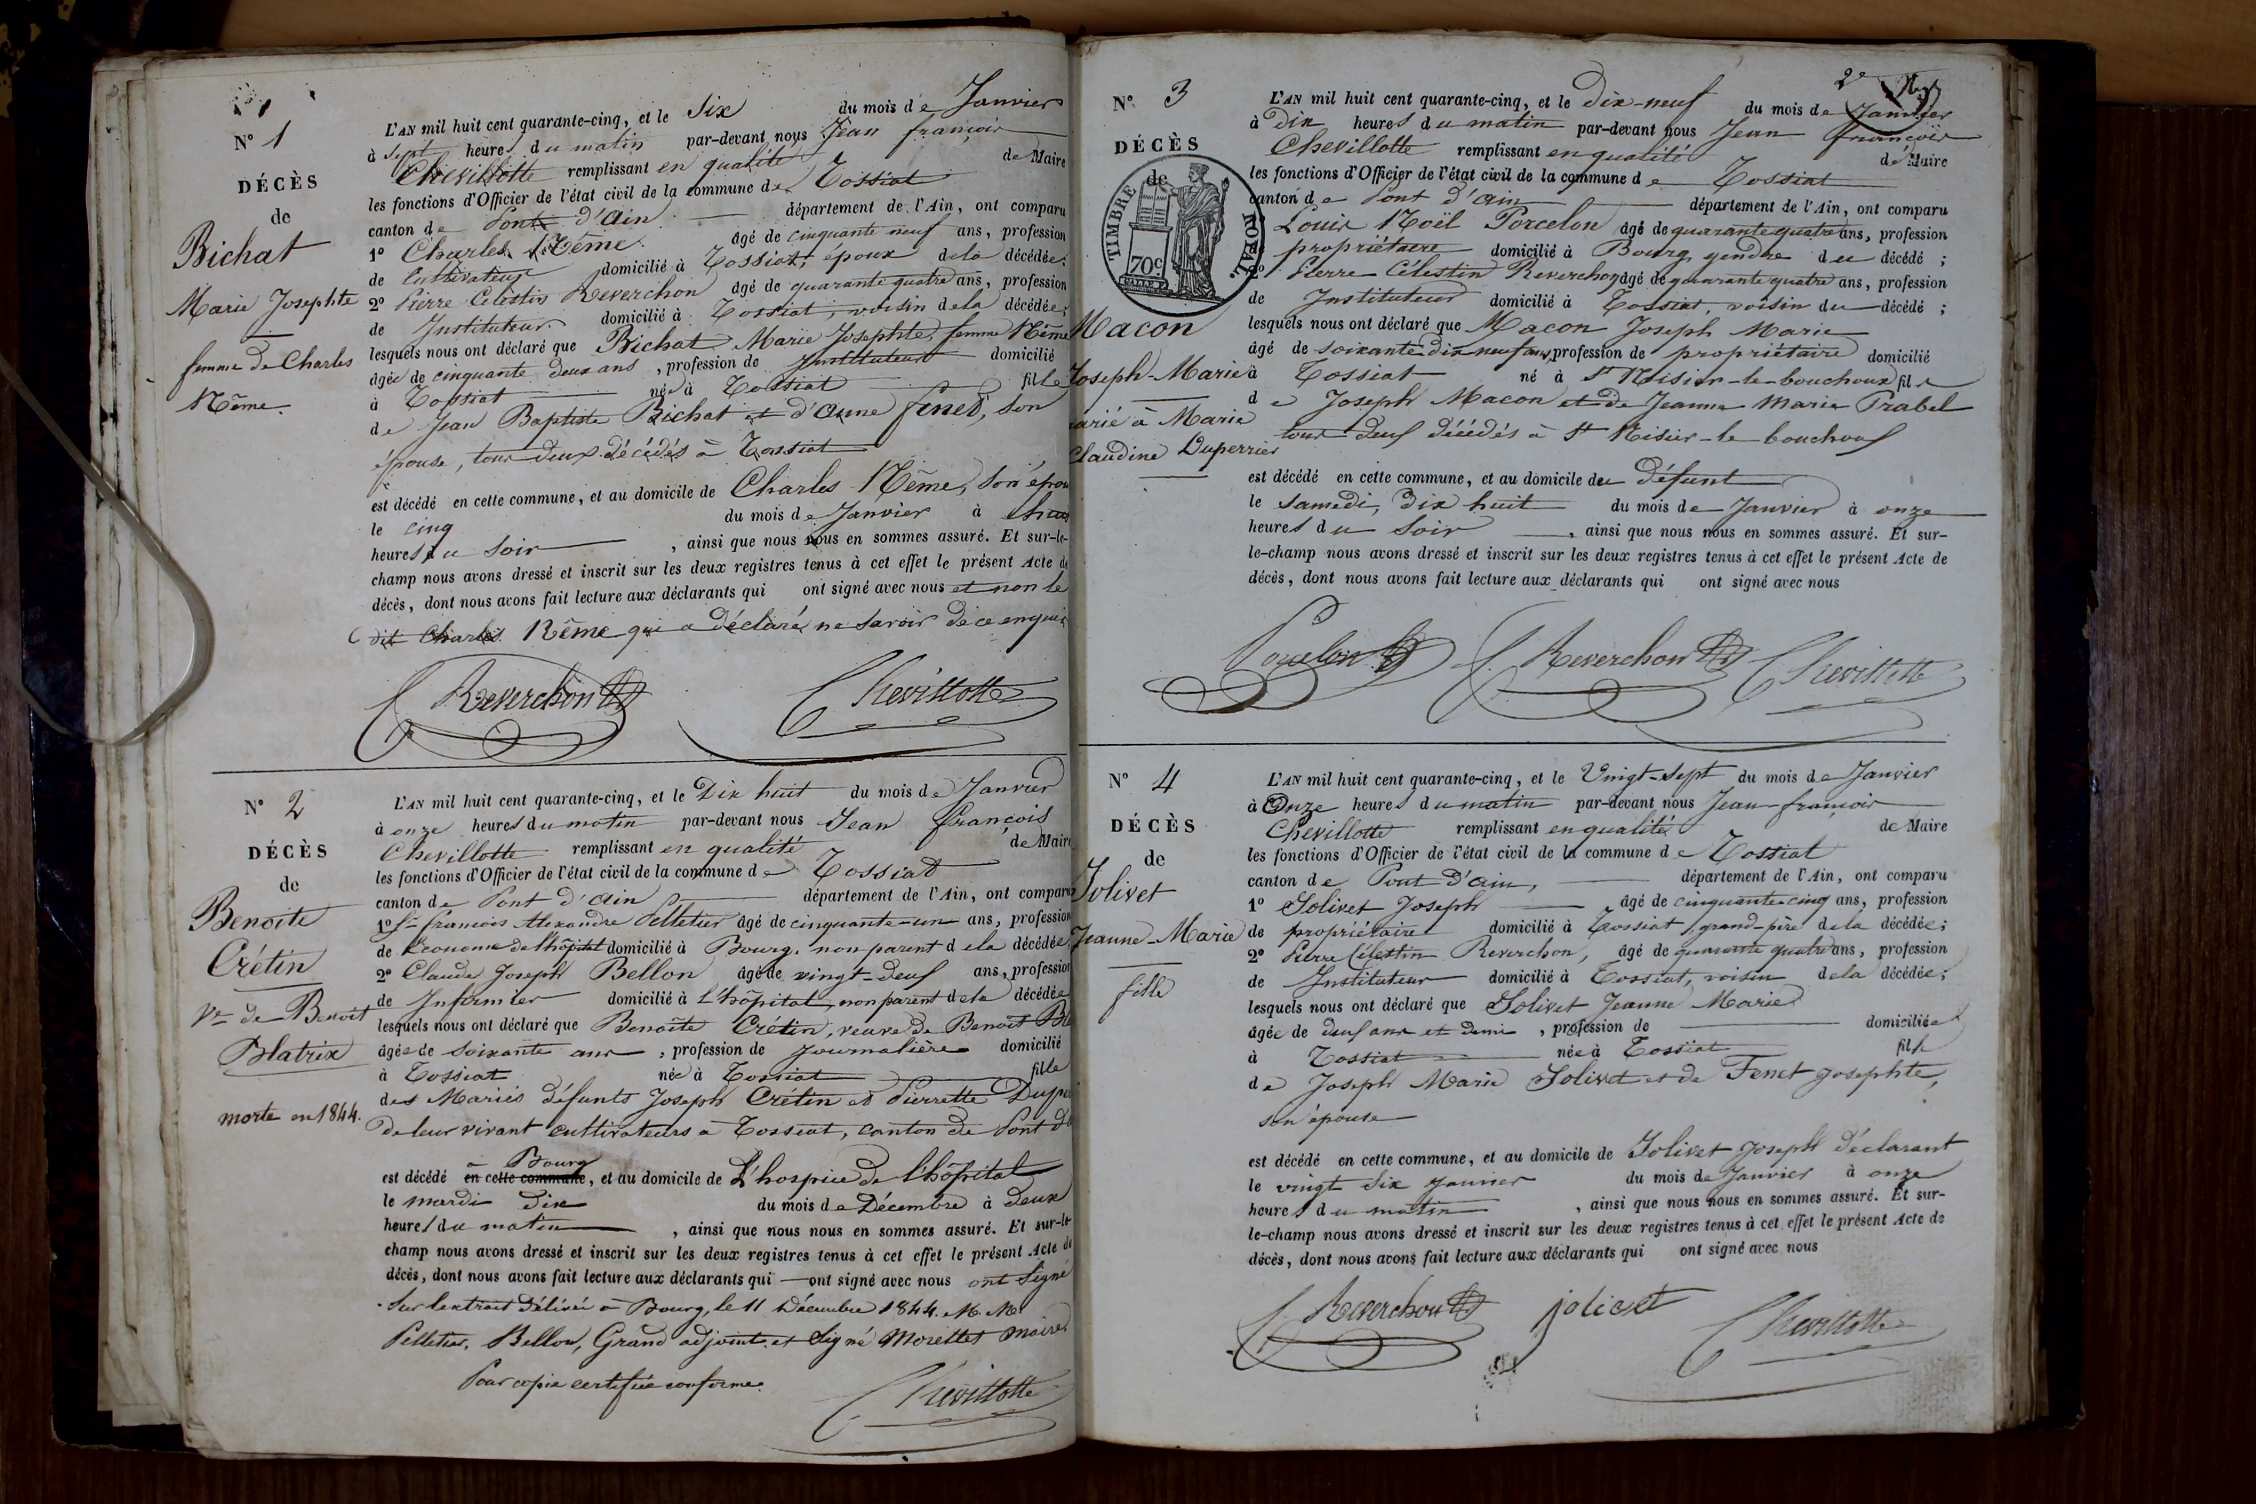 N° 1
DÉCÈS
de
Bichat
Marie Josephte
femme de Charles
Nême.
L'AN mil huit cent quarante-cinq, et le Six du mois de Janvier
à sept heures du matin par-devant nous Jean françois
Chevillotte remplissant en qualité de Maire
les fonctions d'Officier de l'état civil de la commune de Tossiat
canton de Pont d'Ain département de l'Ain, ont comparu
1° Charles Nême âgé de cinquante neuf ans, profession
de cultivateur domicilié à Tossiat, époux de la décédée;
2° Pierre Célestin Reverchon âgé de quarante quatre ans, profession
de Instituteur domicilié à Tossiat, voisin de la décédée;
lesquels nous ont déclaré que Bichat Marie Josephte, femme Nême
âgée de cinquante deux ans, profession de Instituteur domicilié
à Tossiat née à Tossiat fille
de Jean Baptiste Bichat et d'Anne fenet, son
épouse, tous deux décédés à Tossiat
est décédé en cette commune, et au domicile de Charles Nême, son épou
le cinq du mois de Janvier à
heures du soir, ainsi que nous nous en sommes assuré. Et sur-le-
champ nous avons dressé et inscrit sur les deux registres tenus à cet effet le présent Acte de
décès, dont nous avons fait lecture aux déclarants qui ont signé avec nous et non le
dit Charles Nême qui a déclaré ne savoir de ce enquis
Reverchon Chevillotte
N° 2
DÉCÈS
de
Benoite
Crétin
Ve de Benoit
Blatrix
morte en 1844.
L'AN mil huit cent quarante-cinq, et le Dix huit du mois de Janvier
à onze heures du matin par-devant nous Jean françois
Chevillotte remplissant en qualité de Maire
les fonctions d'Officier de l'état civil de la commune de Tossiat
canton de Pont d'Ain département de l'Ain, ont comparu
1° Sr françois Alexandre Pelletier âgé de cinquante-un ans, profession
de Econome de l'hôpital domicilié à Bourg, non parent de la décédée
2° Claude Joseph Bellon âgé de vingt-deux ans, profession
de Infirmier domicilié à l'hôpital, non parent de la décédée
lesquels nous ont déclaré que Benoite Crétin, veuve de Benoit Bla
âgée de soixante ans, profession de Journalière domicilié
à Tossiat née à Tossiat fille
des Mariés défunts Joseph Cretin et Pierrette Dupe
de leur vivant cultivateurs à Tossiat, canton de Pont d'
à Bourg
est décédé en cette commune, et au domicile de L'hospice de l'hôpital
le mardi Dix du mois de Décembre à deux
heures du matin, ainsi que nous nous en sommes assuré. Et sur-le-
champ nous avons dressé et inscrit sur les deux registres tenus à cet effet le présent Acte de
décès, dont nous avons fait lecture aux déclarants qui ont signé avec nous ont signé
Sur l'extrait délivré à Bourg, le 11 Décembre 1844. M. M.
Pelletier, Bellon, Grand adjoint et Signé Morellet maire
Pour copie certifiée conforme.
Chevillotte
2e
N° 3
DÉCÈS
de
TIMBRE ROYAL.
70c
Macon
Joseph-Marie
marié à Marie
Claudine Duperrier
L'AN mil huit cent quarante-cinq, et le Dix-neuf du mois de Janvier
à Dix heures du matin par-devant nous Jean françois
Chevillotte remplissant en qualité de Maire
les fonctions d'Officier de l'état civil de la commune de Tossiat
canton de Pont d'Ain département de l'Ain, ont comparu
Louis Noël Porcelon âgé de quarante quatre ans, profession
propriétaire domicilié à Bourg, gendre du décédé;
2° Pierre Célestin Reverchon âgé de quarante quatre ans, profession
de Instituteur domicilié à Tossiat, voisin du décédé;
lesquels nous ont déclaré que Macon Joseph Marie
âgé de soixante dix neuf ans, profession de propriétaire domicilié
à Tossiat né à St Nisier-le-bouchoux fils
de Joseph Macon et de Jeanne Marie Prabel
tous deux décédés à St Nisier-le bouchoux
est décédé en cette commune, et au domicile du Défunt
le samedi, Dix huit du mois de Janvier à onze
heures du soir, ainsi que nous nous en sommes assuré. Et sur-
le-champ nous avons dressé et inscrit sur les deux registres tenus à cet effet le présent Acte de
décès, dont nous avons fait lecture aux déclarants qui ont signé avec nous
Porcelon Reverchon Chevillotte
N° 4
DÉCÈS
de
Jolivet
Jeanne-Marie
fille
L'AN mil huit cent quarante-cinq, et le Vingt-sept du mois de Janvier
à Onze heures du matin par-devant nous Jean-françois
Chevillotte remplissant en qualité de Maire
les fonctions d'Officier de l'état civil de la commune de Tossiat
canton de Pont d'Ain, département de l'Ain, ont comparu
1° Jolivet Joseph âgé de cinquante-cinq ans, profession
de propriétaire domicilié à Tossiat, grand-père de la décédée;
2° Pierre Célestin Reverchon, âgé de quarante quatre ans, profession
de Instituteur domicilié à Tossiat, voisin de la décédée;
lesquels nous ont déclaré que Jolivet Jeanne Marie
âgée de deux ans et demi, profession de domiciliée
à Tossiat née à Tossiat fille
de Joseph Marie Jolivet et de Fenet Josephte,
son épouse
est décédé en cette commune, et au domicile de Jolivet Joseph déclarant
le vingt six janvier du mois de Janvier à onze
heures du matin, ainsi que nous nous en sommes assuré. Et sur-
le-champ nous avons dressé et inscrit sur les deux registres tenus à cet effet le présent Acte de
décès, dont nous avons fait lecture aux déclarants qui ont signé avec nous
Reverchon jolivet Chevillotte